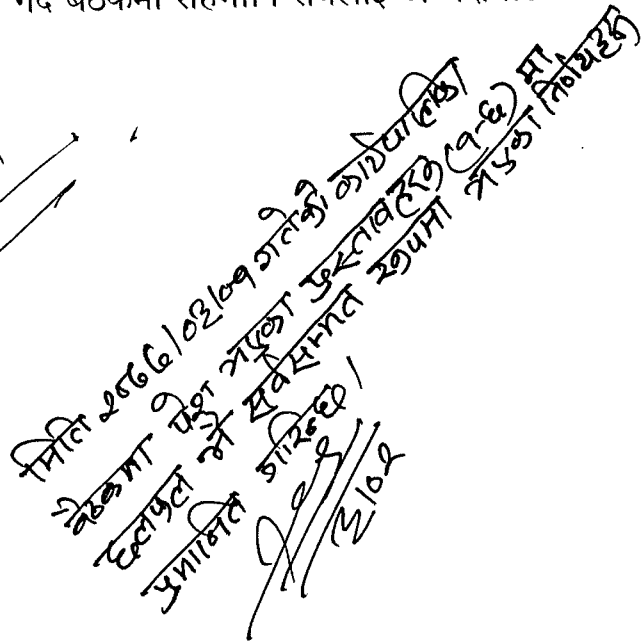 मिति २०७६/०३/०१ गतेको कार्यपालिका
बैठकमा पेश भएका प्रस्तावहरू (१-६) मा
छलफल भै सर्वसम्मत रुपमा भएका निर्णयहरु
प्रमाणित गरिन्छ।
३/०२